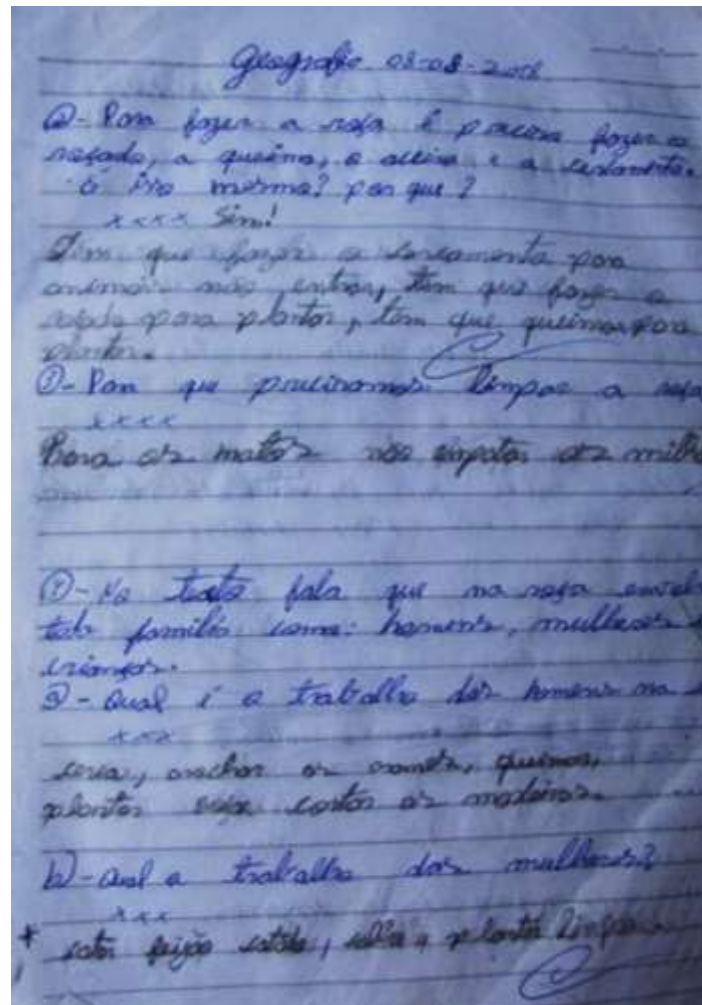 Geografia 03-08-2018
②- Para fazer a roça é precisa fazer a
roçado, a queima, o aceiro e a
é isso mesmo? por que?
xxxx Sim!
Tem que fazer o cercamento para
animais não entrar, tem que fazer a
para plantar, tem que queimar para
plantar.
③- Para que precisamos limpar a roça
xxxx
Para os matos não os milho
④- No texto fala que na roça
toda família como: homens, mulheres e
crianças.
- Qual é o trabalho dos homens na
xxx
cerca, os, queimar,
plantar cortar as madeiras.
b)- Qual a trabalho das mulheres?
xxx
feijão, planta